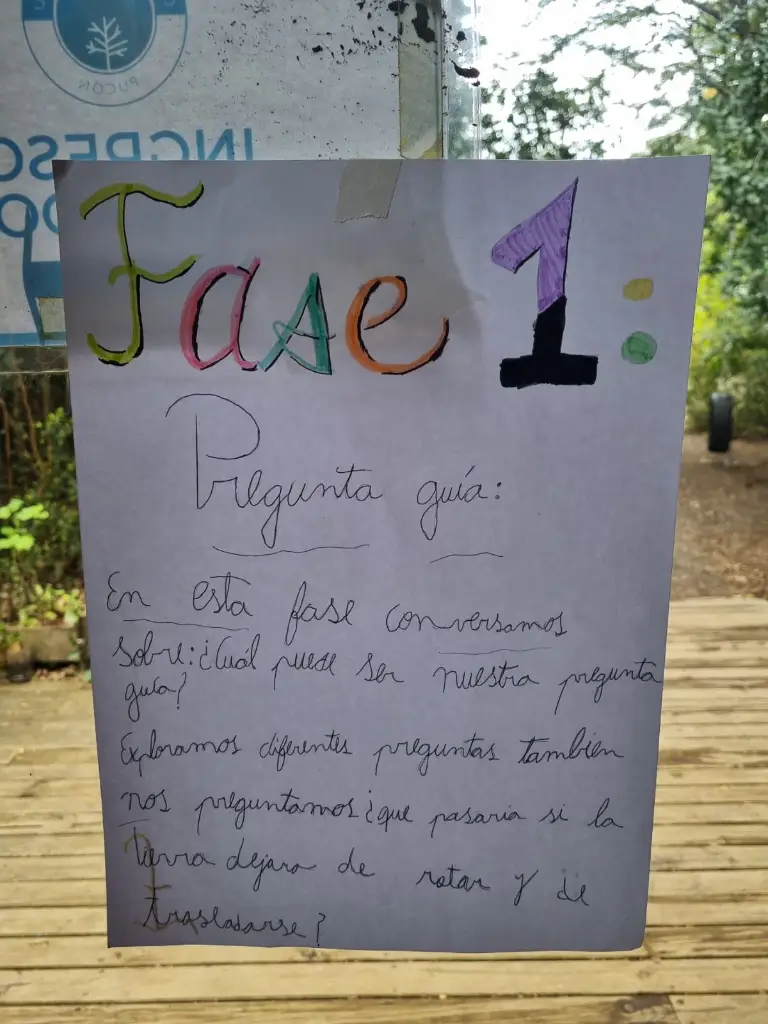 PUCÓN
INGRESO
Fase 1:
Pregunta guía:
En esta fase conversamos
sobre: ¿Cuál puede ser nuestra pregunta
guía?
Exploramos diferentes preguntas tambien
nos preguntamos ¿que pasaria si la
tierra dejara de rotar y de
trasladarse?